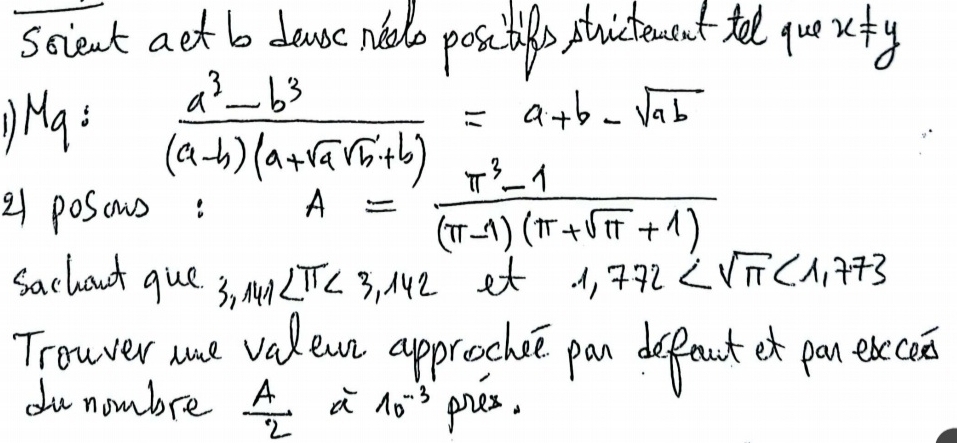 Soient a et b deux réels positifs strictement tel que x≠y
1) Mq : (a³ - b³) / ((a-b)(a+√a√b+b)) = a+b-√ab
2) posons : A = (π³-1) / ((π-1)(π+√π+1))
Sachant que 3,141<π<3,142 et 1,772<√π<1,773
Trouver une valeur approchée par défaut et par excés
du nombre A/2 à 10⁻³ prés.